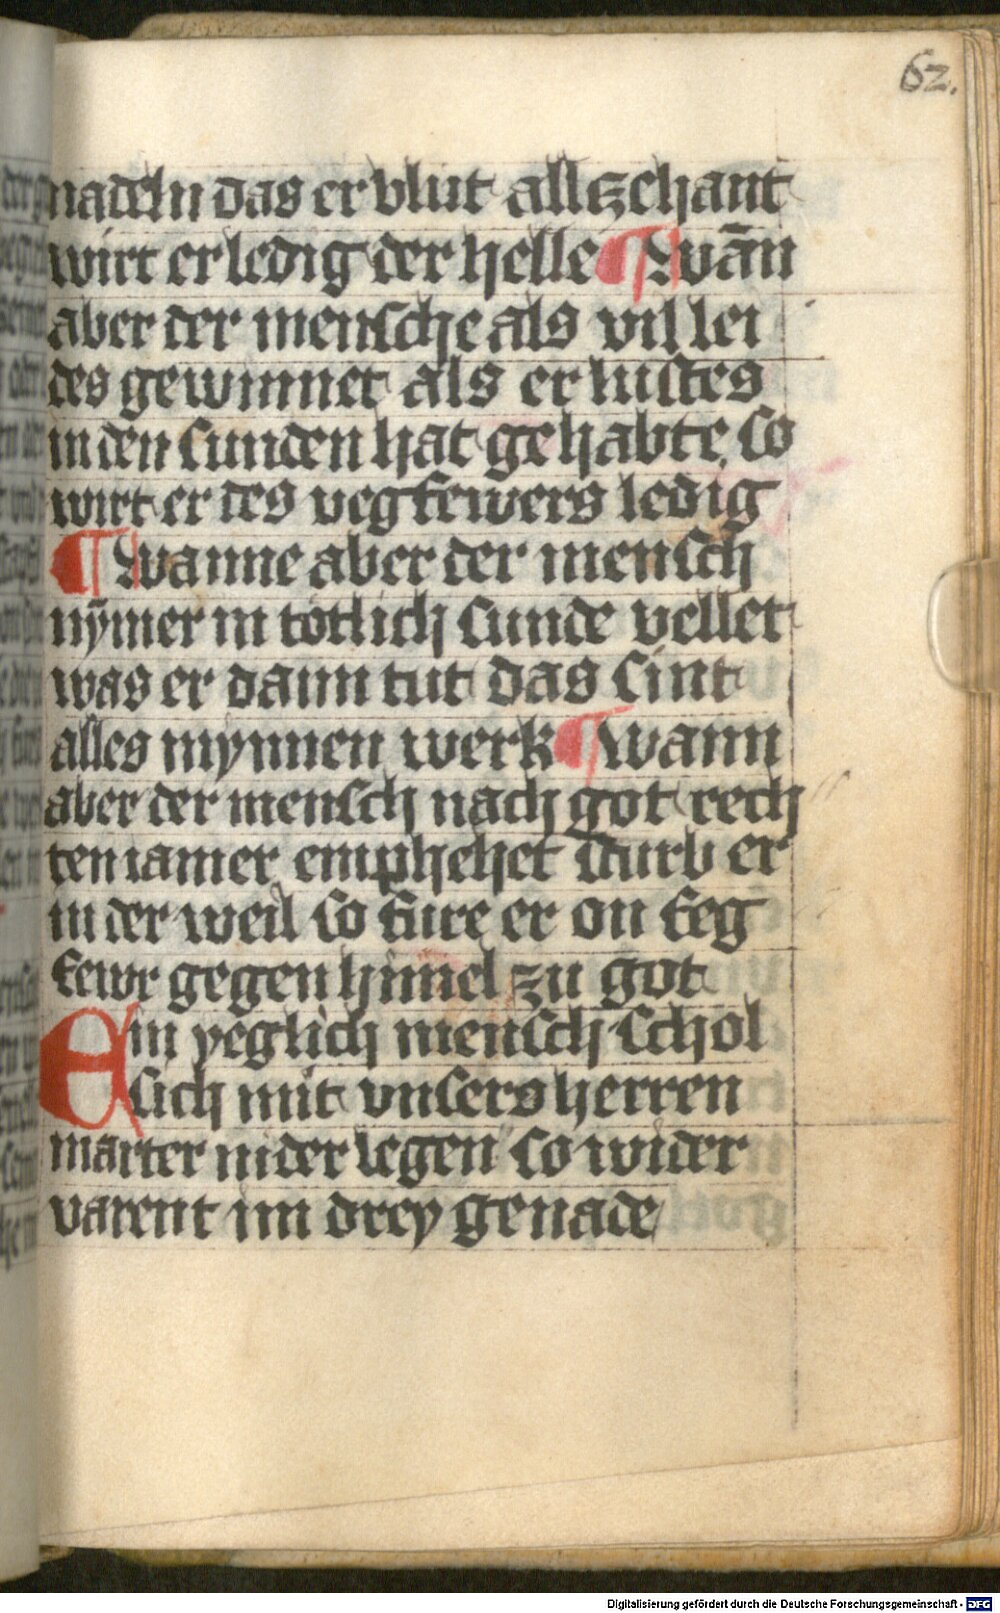 62.
nadeln das er blut allczehant
wirt er ledig der helle ¶ wān
aber der mensche als vil lei
des gewinnet als er lustes
in den sunden hat gehabte so
wirt er des vegfewers ledig
¶ wanne aber der mensch
nȳmer in totlich sunde vellet
was er dann tut das sint
alles mynnen werk ¶ wann
aber der mensch nach got rech
ten iamer emphehet sturb er
in der weil so fure er on feg
fewr gegen himel zu got
Ein yeglich mensch schol
sich mit vnsers herren
marter nider legen so wider
varent im drey genade
Digitalisierung gefördert durch die Deutsche Forschungsgemeinschaft - DFG